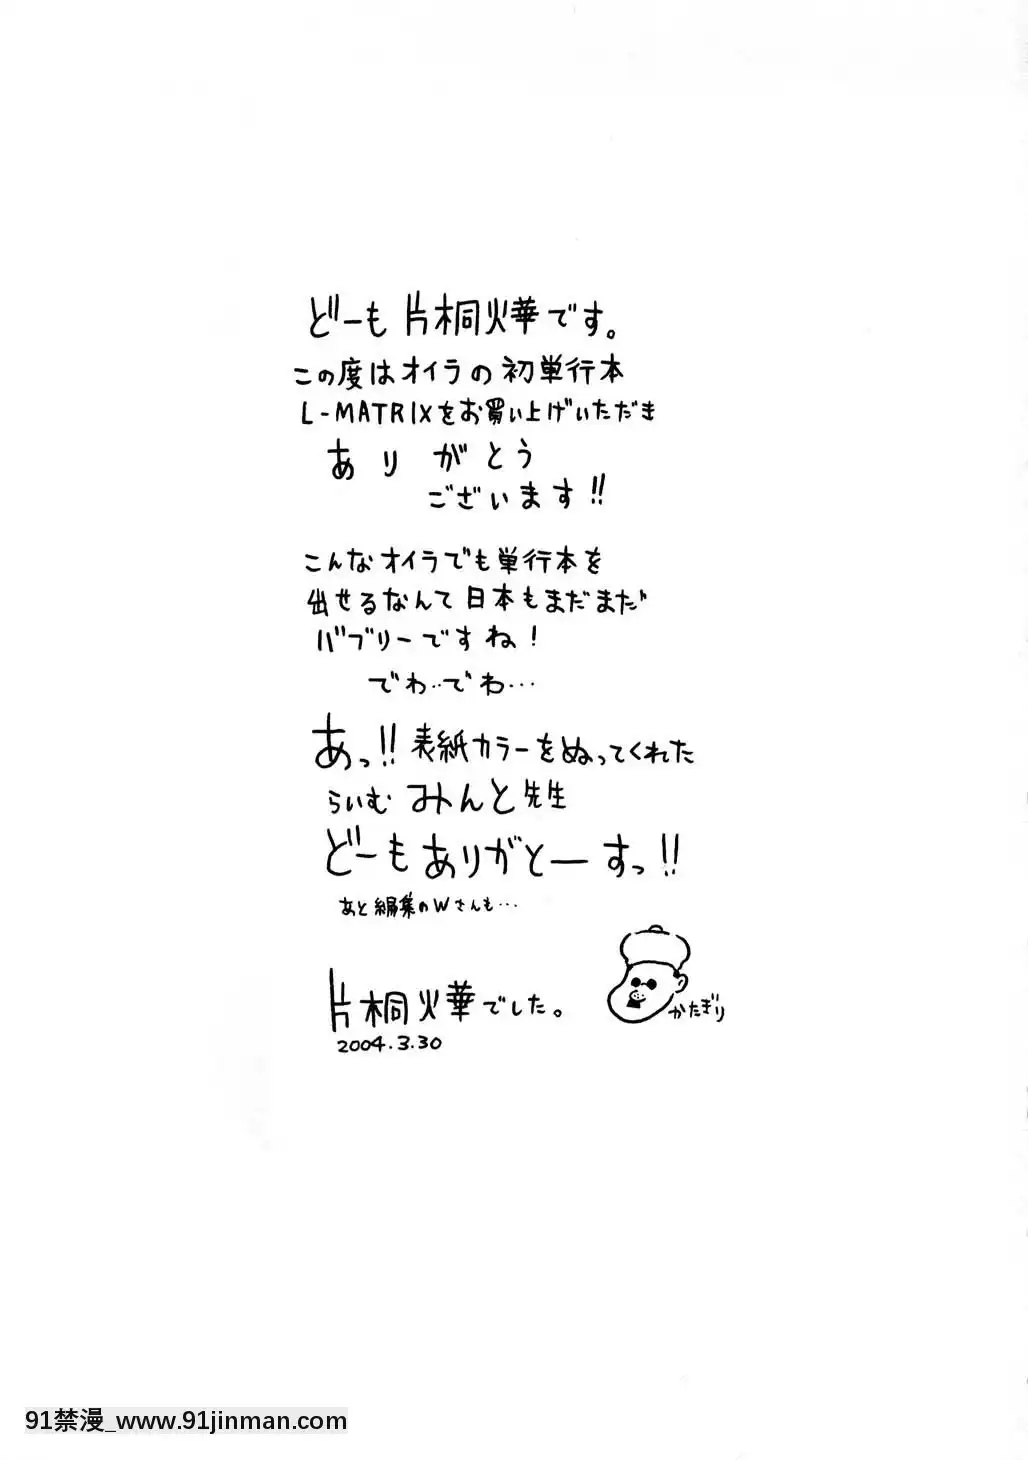 どーも片桐火華です。
この度はオイラの初単行本
L-MATRIXをお買い上げいただき
ありがとう
ございます!!
こんなオイラでも単行本を
出せるなんて日本もまだまだ
バブリーですね!
でわ‥でわ…
あっ!!表紙カラーをぬってくれた
らいむみんと先生
どーもありがとーすっ!!
あと編集のWさんも…
片桐火華でした。
かたぎり
2004.3.30
91禁漫_www.91jinman.com